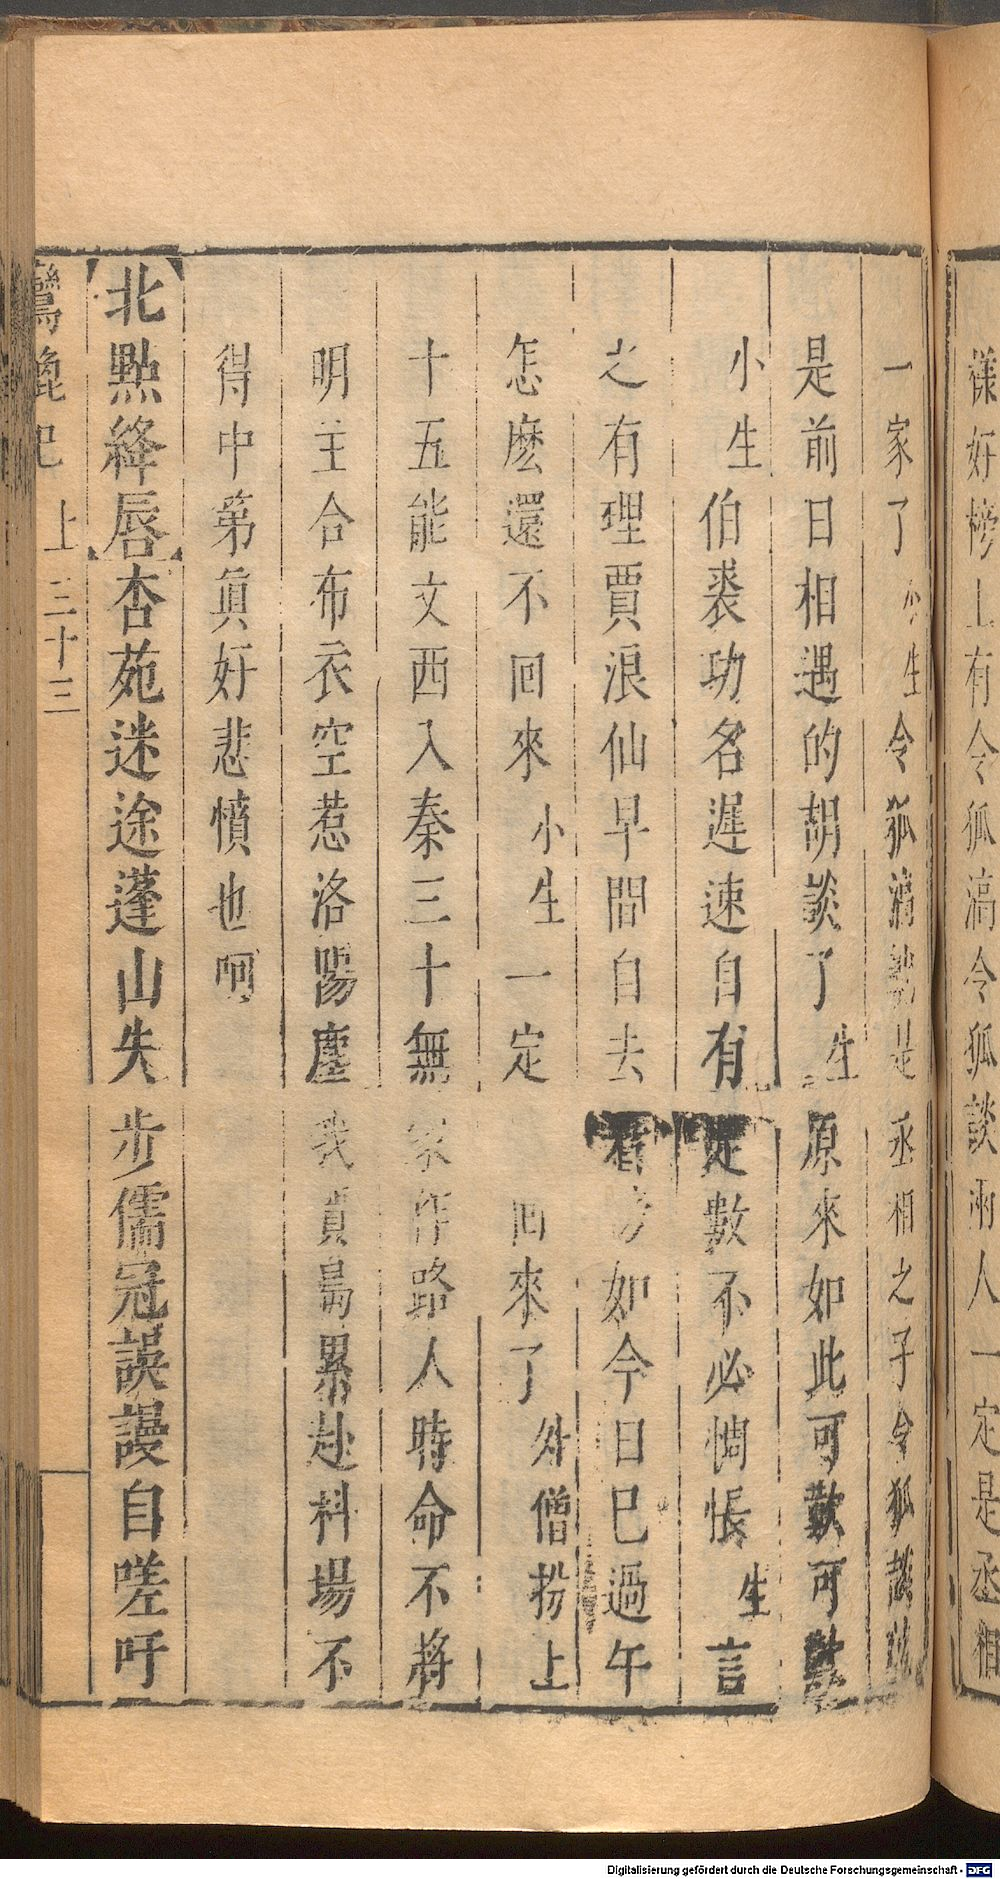 樣好榜上有令狐滈令狐談兩人一定是丞相
一家了小生令狐滈是丞相之子令狐談
是前日相遇的胡談了生原來如此可歎可歎
小生伯裘功名遲速自有定數不必惆悵生言
之有理賈浪仙早間自去看榜如今日已過午
怎麼還不回來小生一定回來了外僧扮上
十五能文西入秦三十無家作路人時命不將
明主合布衣空惹洛陽塵我賈島累赴科場不
得中第眞好悲憤也呵
北點絳唇杏苑迷途蓬山失步儒冠誤謾自嗟吁
鸞鎞記 上 三十三
Digitalisierung gefördert durch die Deutsche Forschungsgemeinschaft - DFG